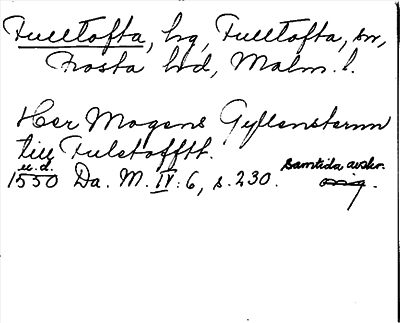 Fulltofta, hg, Fulltofta, sn,
Frosta hd, Malm. l.
Her Mogens Gyllensternn
till Fulstoffth.
u. d.
samtida avskr.
1550 Da. M. IV: 6, s. 230. orig.